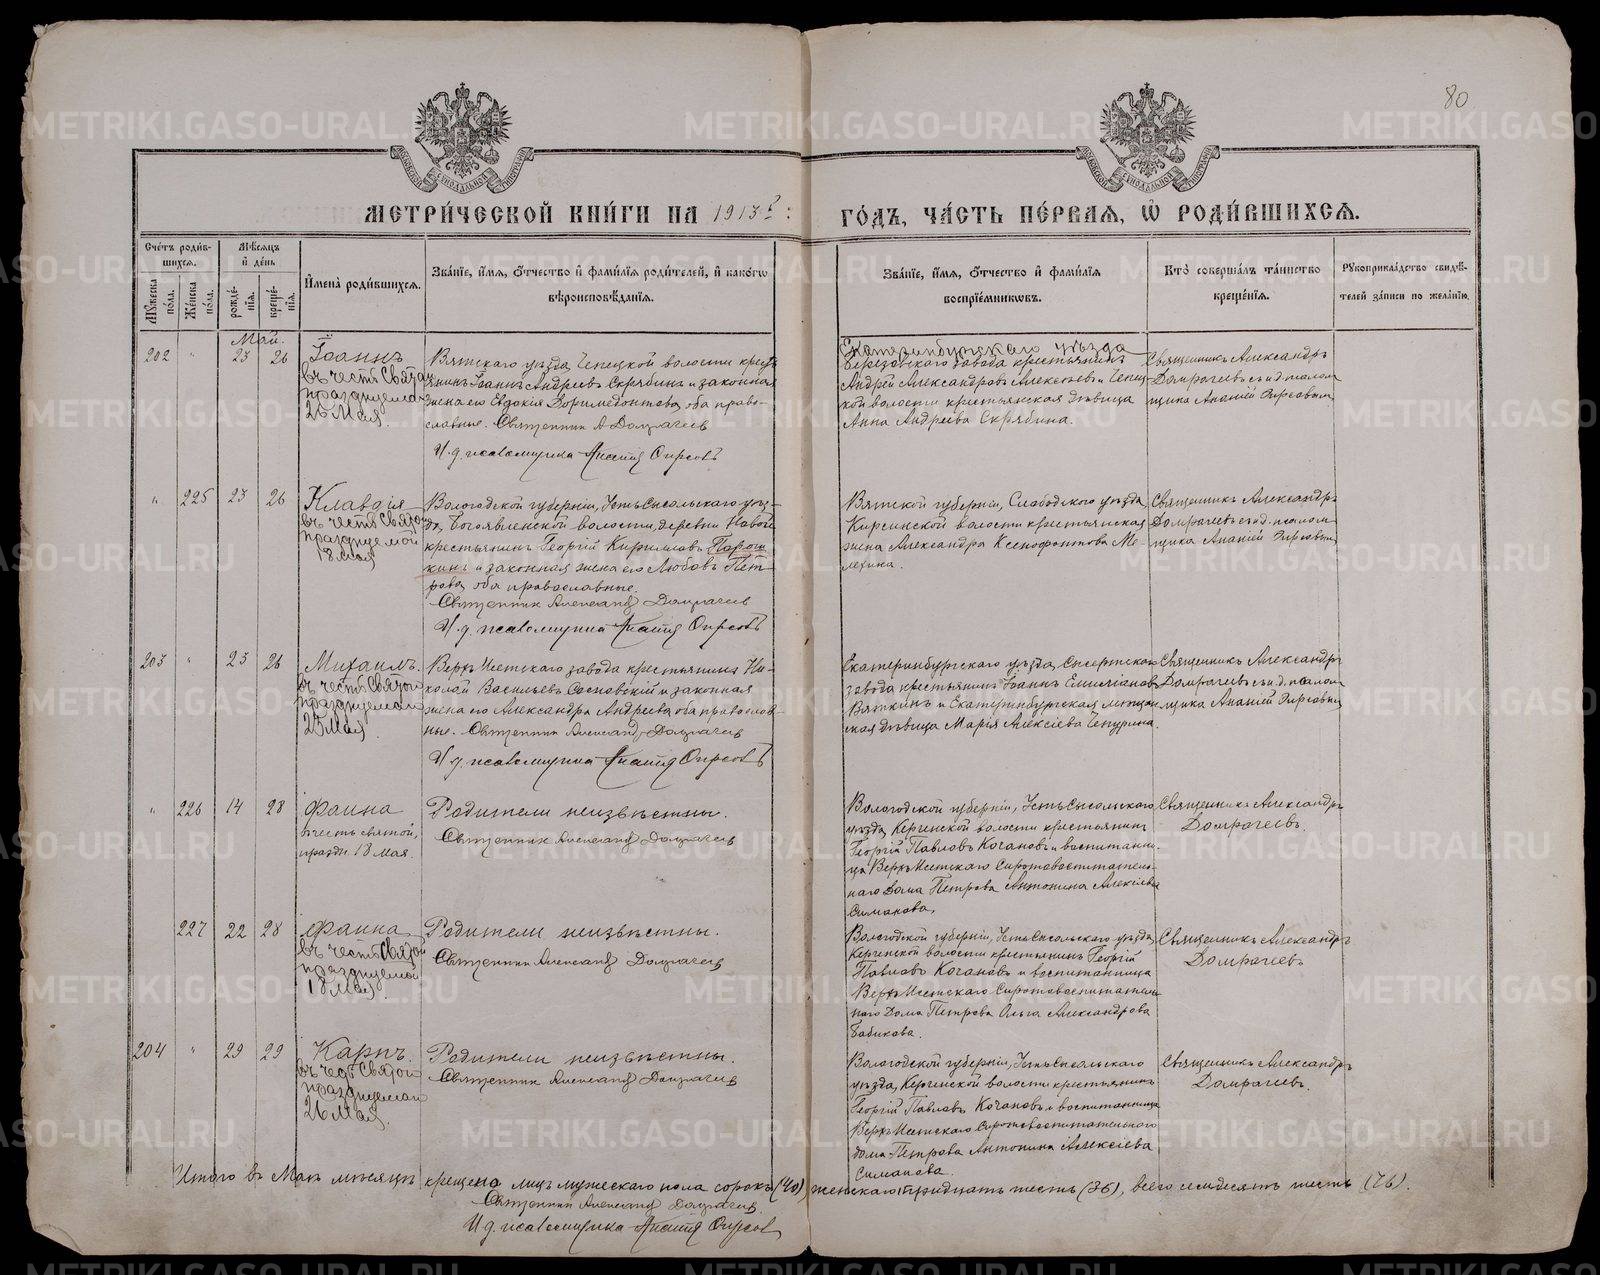 80
МЕТРИ́ЧЕСКОЙ КНИ́ГИ НА 1913 г:
ГО́ДЪ, ЧА́СТЬ ПЕ́РВАЯ, Ѡ РОДИ́ВШИХСЯ.
Счётъ роди́вшихся.
Мꙋжеска по́ла.
Же́нска по́ла.
Мѣ́сяцъ и де́нь
рожде́нїя.
креще́нїя.
Имена̀ роди́вшихся.
Зва́нїе, и́мя, ѻ́тчество и фами́лїя роди́телей, и како́гѡ
вѣроисповѣ́данїя.
Зва́нїе, и́мя, ѻ́тчество и фами́лїя
воспрїе́мникѡвъ.
Кто̀ соверша́лъ та́инство
креще́нїя.
Рꙋкоприкла́дство свидѣ́-
телей за́писи по жела́нїю.
Май.
202 " 23 26
Іоаннъ
въ честь Святого
празднуемаго
25 Мая.
Вятскаго уѣзда, Чепецкой волости кресть-
янинъ Іоаннъ Андреевъ Скрябинъ и законная
жена его Евдокія Форимедонтова, оба право-
славные. Священникъ А Домрачевъ
И. д. псаломщика Ананій Фирсовъ
Екатеринбургскаго уѣзда
Березовскаго завода крестьянинъ
Андрей Александровъ Алексѣевъ и Чепец-
кой волости крестьянская дѣвица
Анна Андреева Скрябина.
Священникъ Александръ
Домрачевъ съ и.д. псалом-
щика Ананіей Фирсовымъ
" 225 23 26
Клавдія
въ честь Святой
празднуемой
18 мая
Вологодской губерніи, Усть-Сысольскаго уѣз-
да, Богоявленской волости, деревни Новой
крестьянинъ Георгій Кирилловъ Парош-
кинъ и законная жена его Любовь Пет-
рова, оба православные.
Священникъ Александръ Домрачевъ
И. д. псаломщика Ананій Фирсовъ
Вятской губерніи, Слободского уѣзда,
Кирсинской волости крестьянская
жена Александра Ксенофонтова Ме-
лехина.
Священникъ Александръ
Домрачевъ съ и.д. псалом-
щика Ананіей Фирсовымъ
203 " 23 26
Михаилъ.
въ честь Святого
празднуемаго
23 Мая.
Верхъ-Исетскаго завода крестьянинъ Ни-
колай Васильевъ Сосновскій и законная
жена его Александра Андреева, оба православ-
ные. Священникъ Александръ Домрачевъ
И. д. псаломщика Ананій Фирсовъ
Екатеринбургскаго уѣзда, Сысертскаго
завода крестьянинъ Іоаннъ Емиліановъ
Вяткинъ и Екатеринбургская мѣщан-
ская дѣвица Марія Алексіева Чепурина.
Священникъ Александръ
Домрачевъ съ и.д. псалом-
щика Ананіей Фирсовымъ
" 226 14 28
Фаина
въ честь святой,
праздн. 18 Мая.
Родители неизвѣстны.
Священникъ Александръ Домрачевъ
Вологодской губерніи, Усть-Сысольскаго
уѣзда, Керченской волости крестьянинъ
Георгій Павловъ Кочановъ и воспитанни-
ца Верхъ-Исетскаго Сиротовоспитатель-
наго Дома Петрова Антонина Алексіева
Симанова.
Священникъ Александръ
Домрачевъ.
227 22 28
Фаина
въ честь Святой
празднуемой
18 Мая.
Родители неизвѣстны.
Священникъ Александръ Домрачевъ
Вологодской губерніи, Усть-Сысольскаго уѣзда,
Керченской волости крестьянинъ Георгій
Павловъ Кочановъ и воспитанница
Верхъ-Исетскаго Сиротовоспитатель-
наго Дома Петрова Ольга Александрова
Бабикова.
Священникъ Александръ
Домрачевъ
204 " 29 29
Карпъ.
въ честь Святого
празднуемаго
26 Мая.
Родители неизвѣстны.
Священникъ Александръ Домрачевъ
Вологодской губерніи, Усть-Сысольскаго
уѣзда, Керченской волости крестьянинъ
Георгій Павловъ Кочановъ и воспитанница
Верхъ-Исетскаго Сиротовоспитательнаго
дома Петрова Антонина Алексіева
Симанова.
Священникъ Александръ
Домрачевъ.
Итого въ Маѣ мѣсяцѣ крещено лицъ мужескаго пола сорокъ (40), женскаго тридцать шесть (36), всего семьдесятъ шесть (76).
Священникъ Александръ Домрачевъ.
И. д. псаломщика Ананій Фирсовъ
METRIKI.GASO-URAL.RU